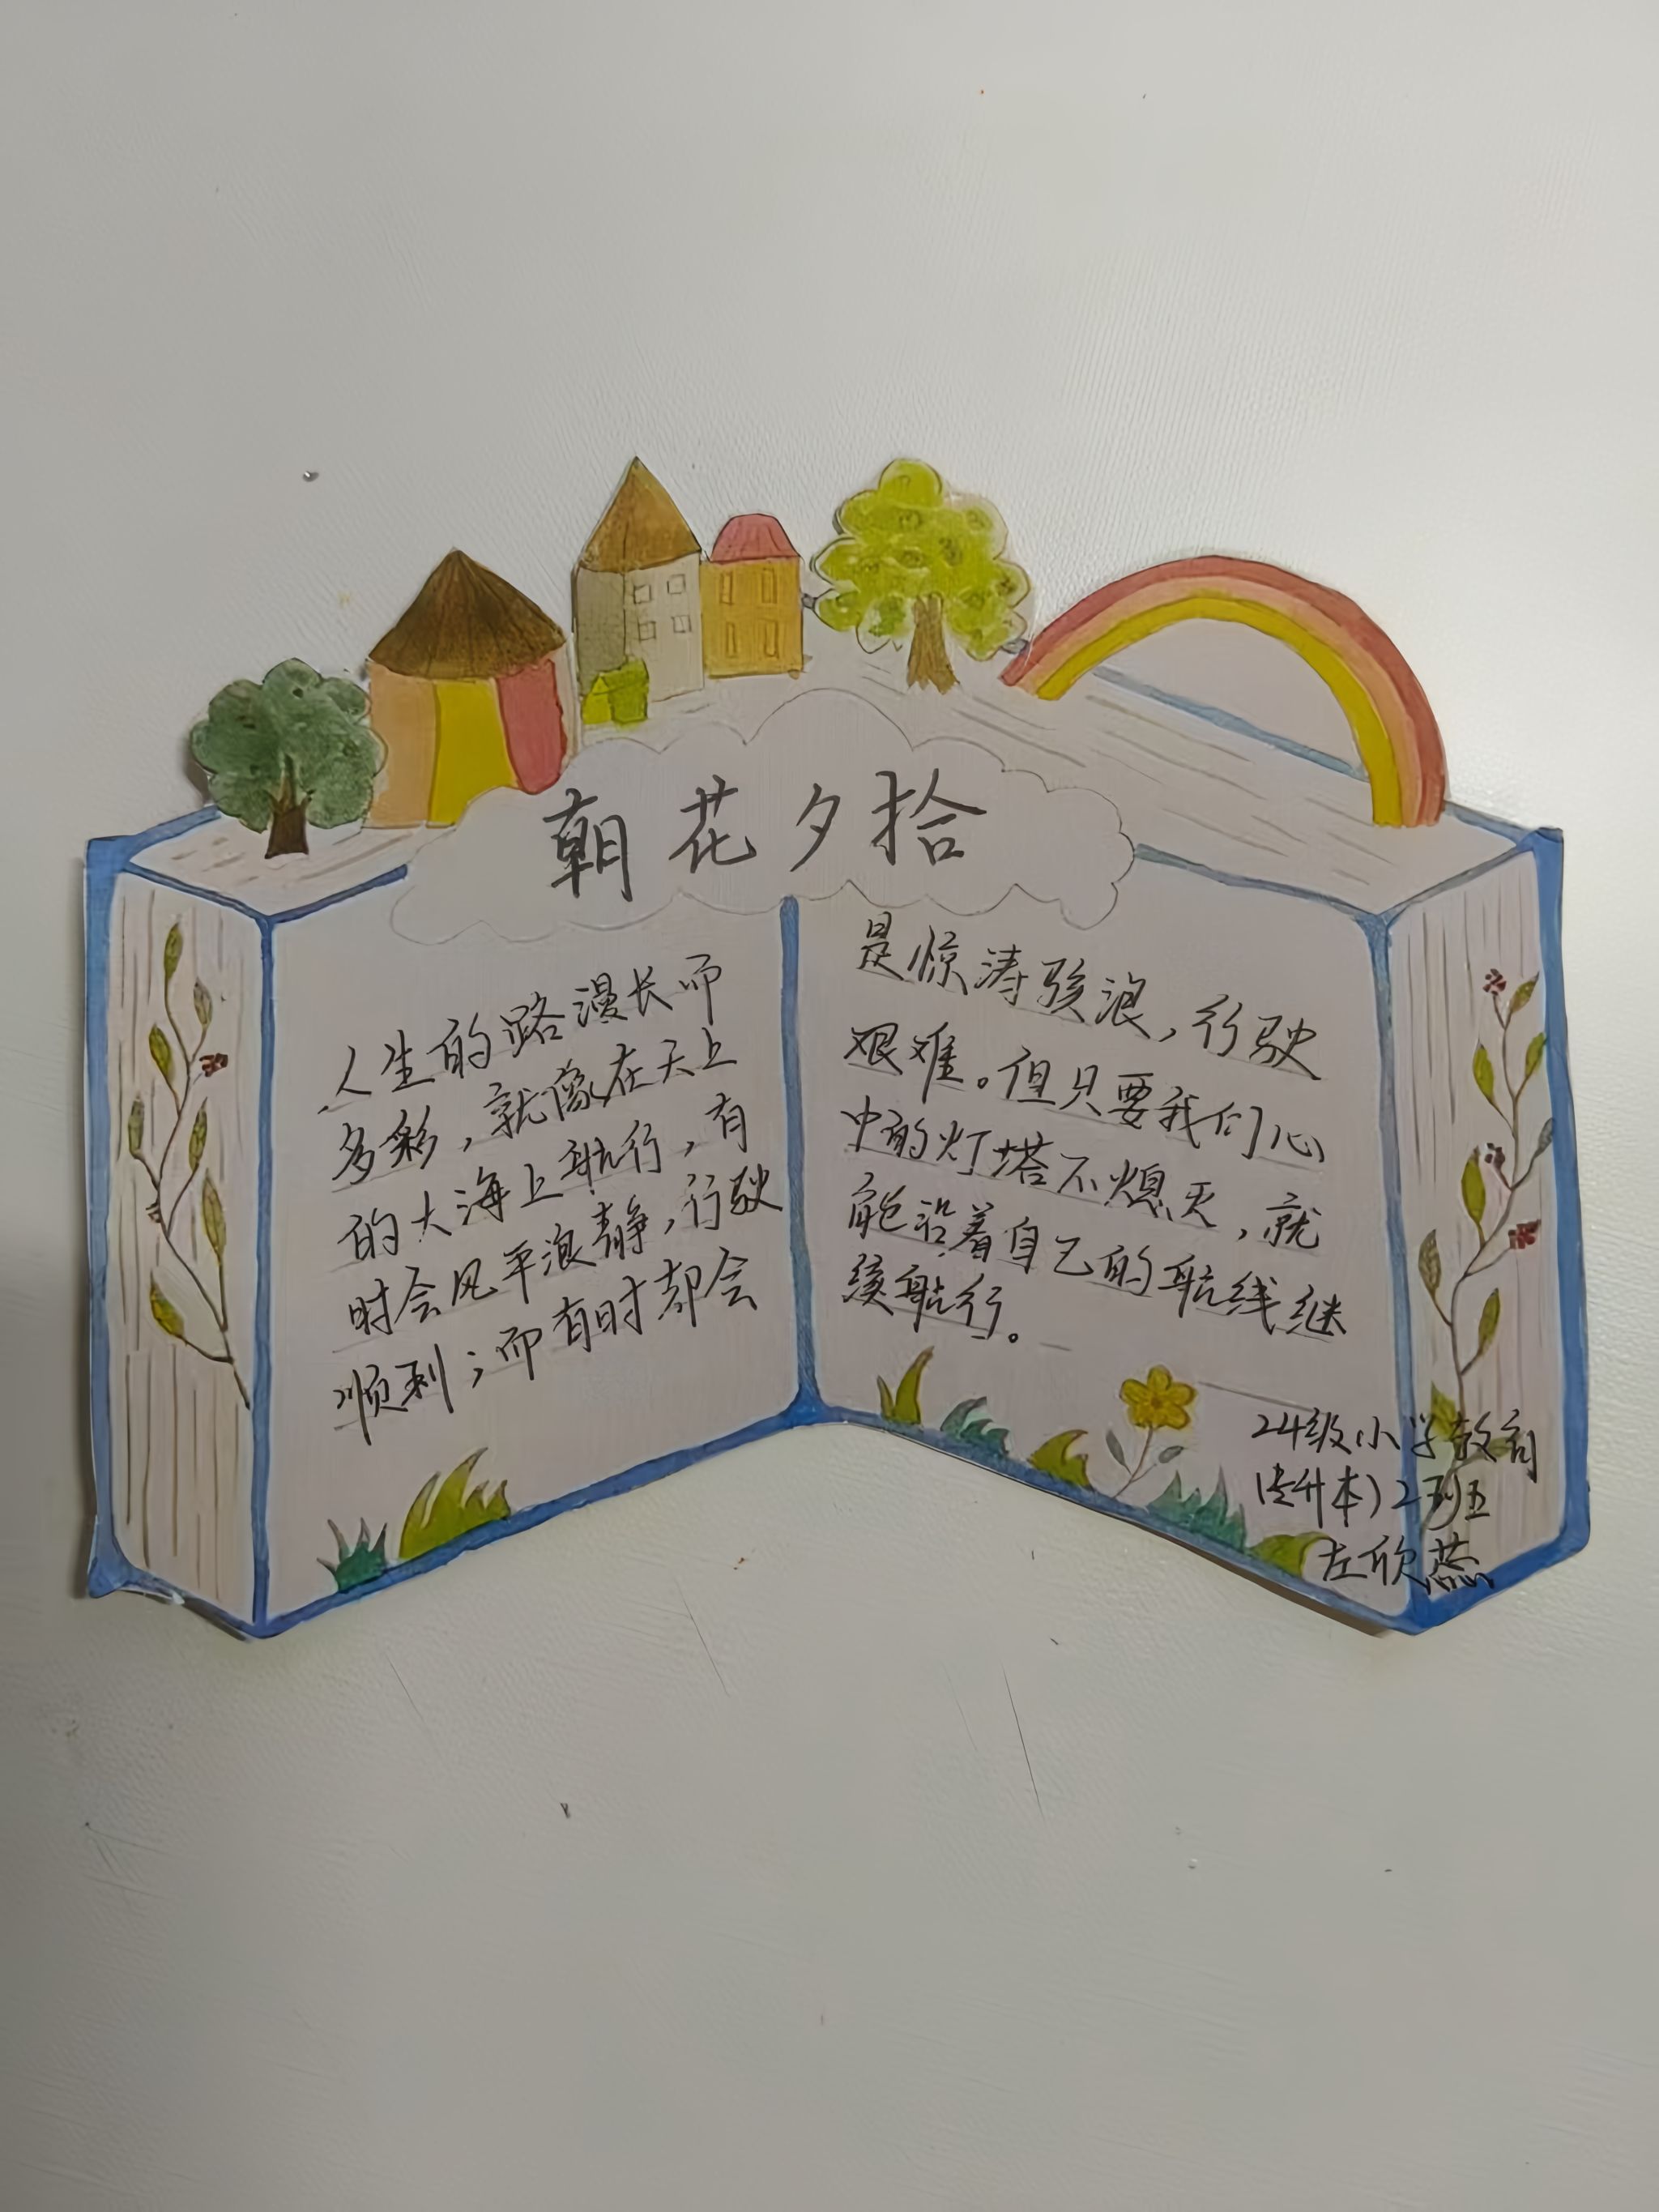 朝花夕拾
人生的路漫长而
多彩，就像在天上
的大海上航行，有
时会风平浪静，行驶
顺利；而有时却会
是惊涛骇浪，行驶
艰难。但只要我们心
中的灯塔不熄灭，就
能沿着自己的航线继
续航行。
24级小学教育
(专升本)2班
左欣蕊